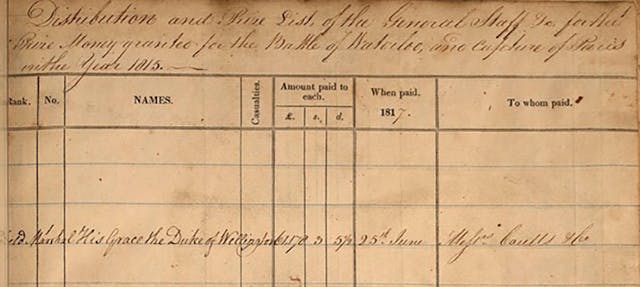 Distribution and Prize List of the General Staff &c for the
Prize Money granted for the Battle of Waterloo, and Capture of Paris
in the Year 1815.
Rank. No. NAMES. Casualties. Amount paid to each. When paid. To whom paid.
£. s. d. 1817.
Field Marshal His Grace the Duke of Wellington 3 5½ 25th June Messrs Coutts & Co